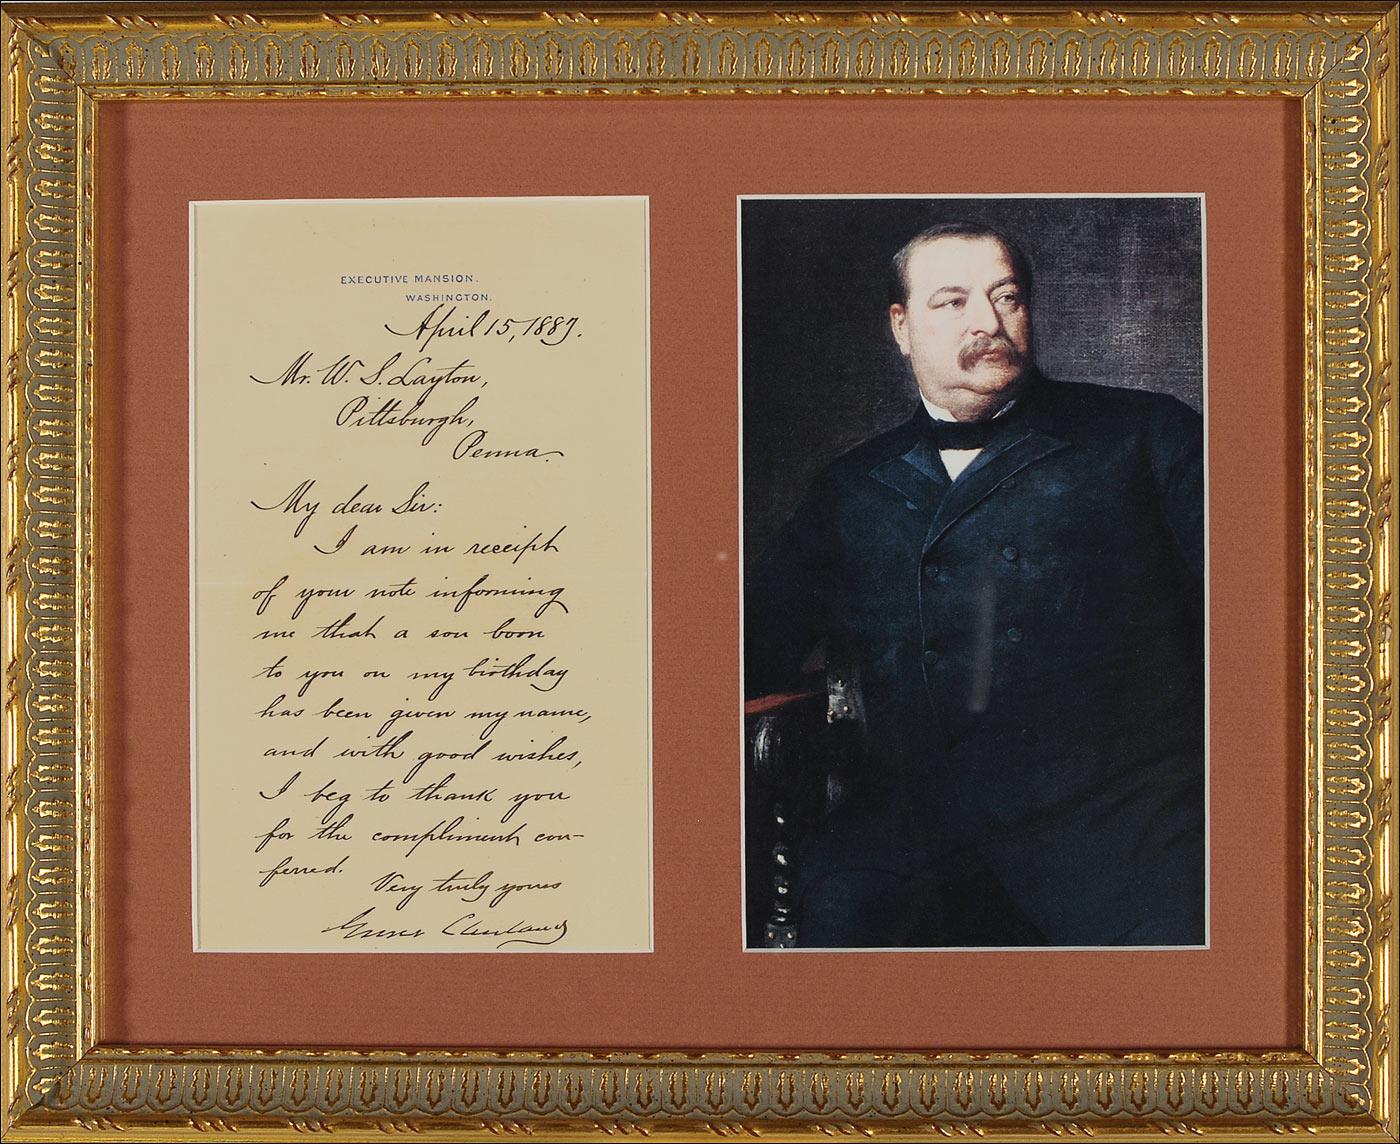 EXECUTIVE MANSION.
WASHINGTON.
April 15, 1887.
Mr. W. S. Layton,
Pittsburgh,
Penna.
My dear Sir:
I am in receipt
of your note informing
me that a son born
to you on my birthday
has been given my name,
and with good wishes,
I beg to thank you
for the compliment con-
ferred.
Very truly yours
Grover Cleveland